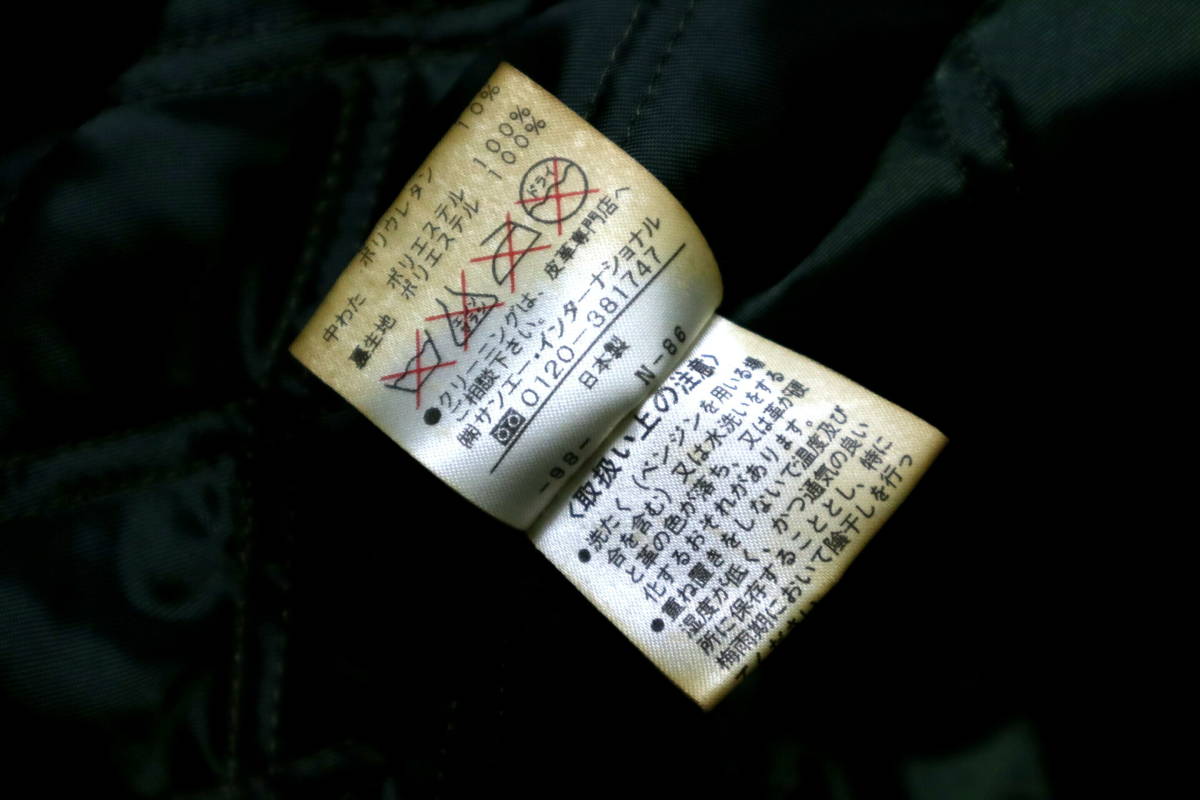 10%
ポリウレタン
中わた ポリエステル 100%
裏生地 ポリエステル 100%
エンソ
サラシ
ドライ
●クリーニングは、皮革専門店へ
ご相談下さい。
㈱サンエー・インターナショナル
0120-381747
日本製
N-86
-98-
〈取扱い上の注意〉
●洗たく(ベンジンを用いる場
合を含む)又は水洗いをする
と革の色が落ち、又は革が硬
化するおそれがあります。
●重ね置きをしないで温度及び
湿度が低く、かつ通気の良い
所に保存することとし、特に
梅雨期において陰干しを行っ
てください